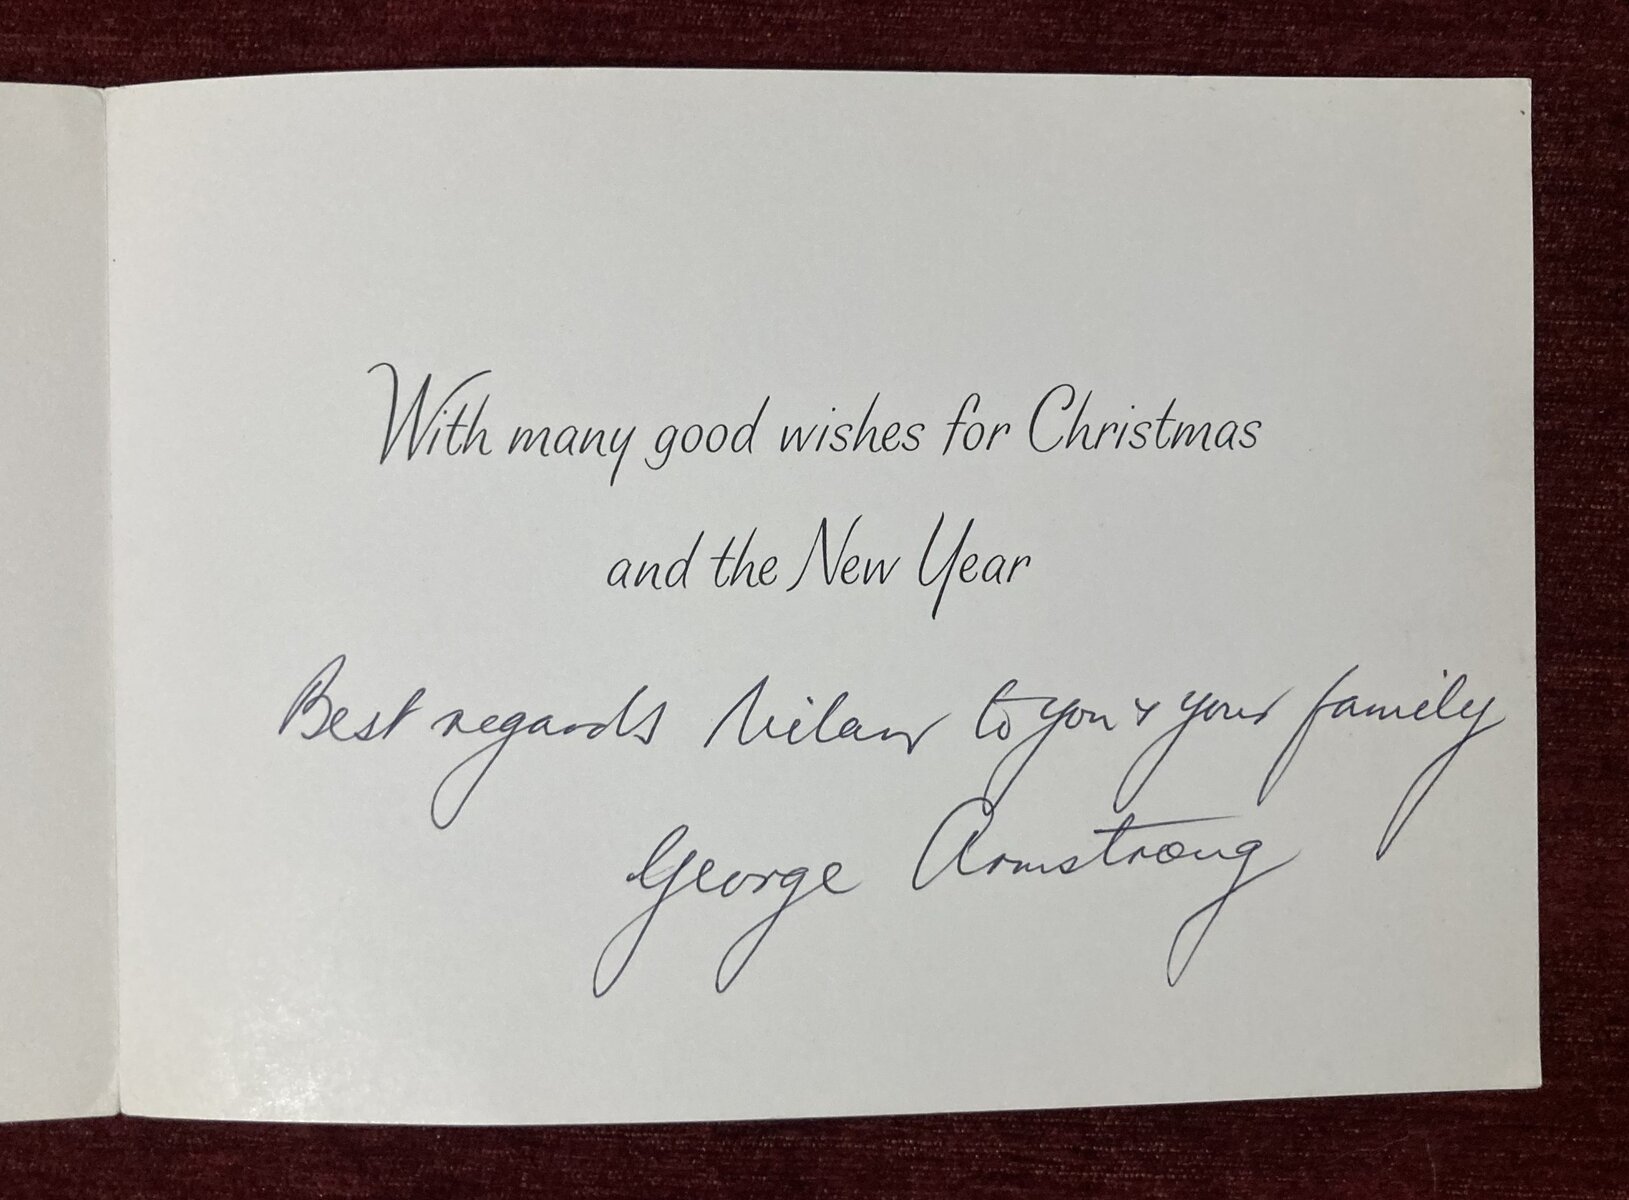 With many good wishes for Christmas
and the New Year
Best regards Milan to you & your family
George Armstrong